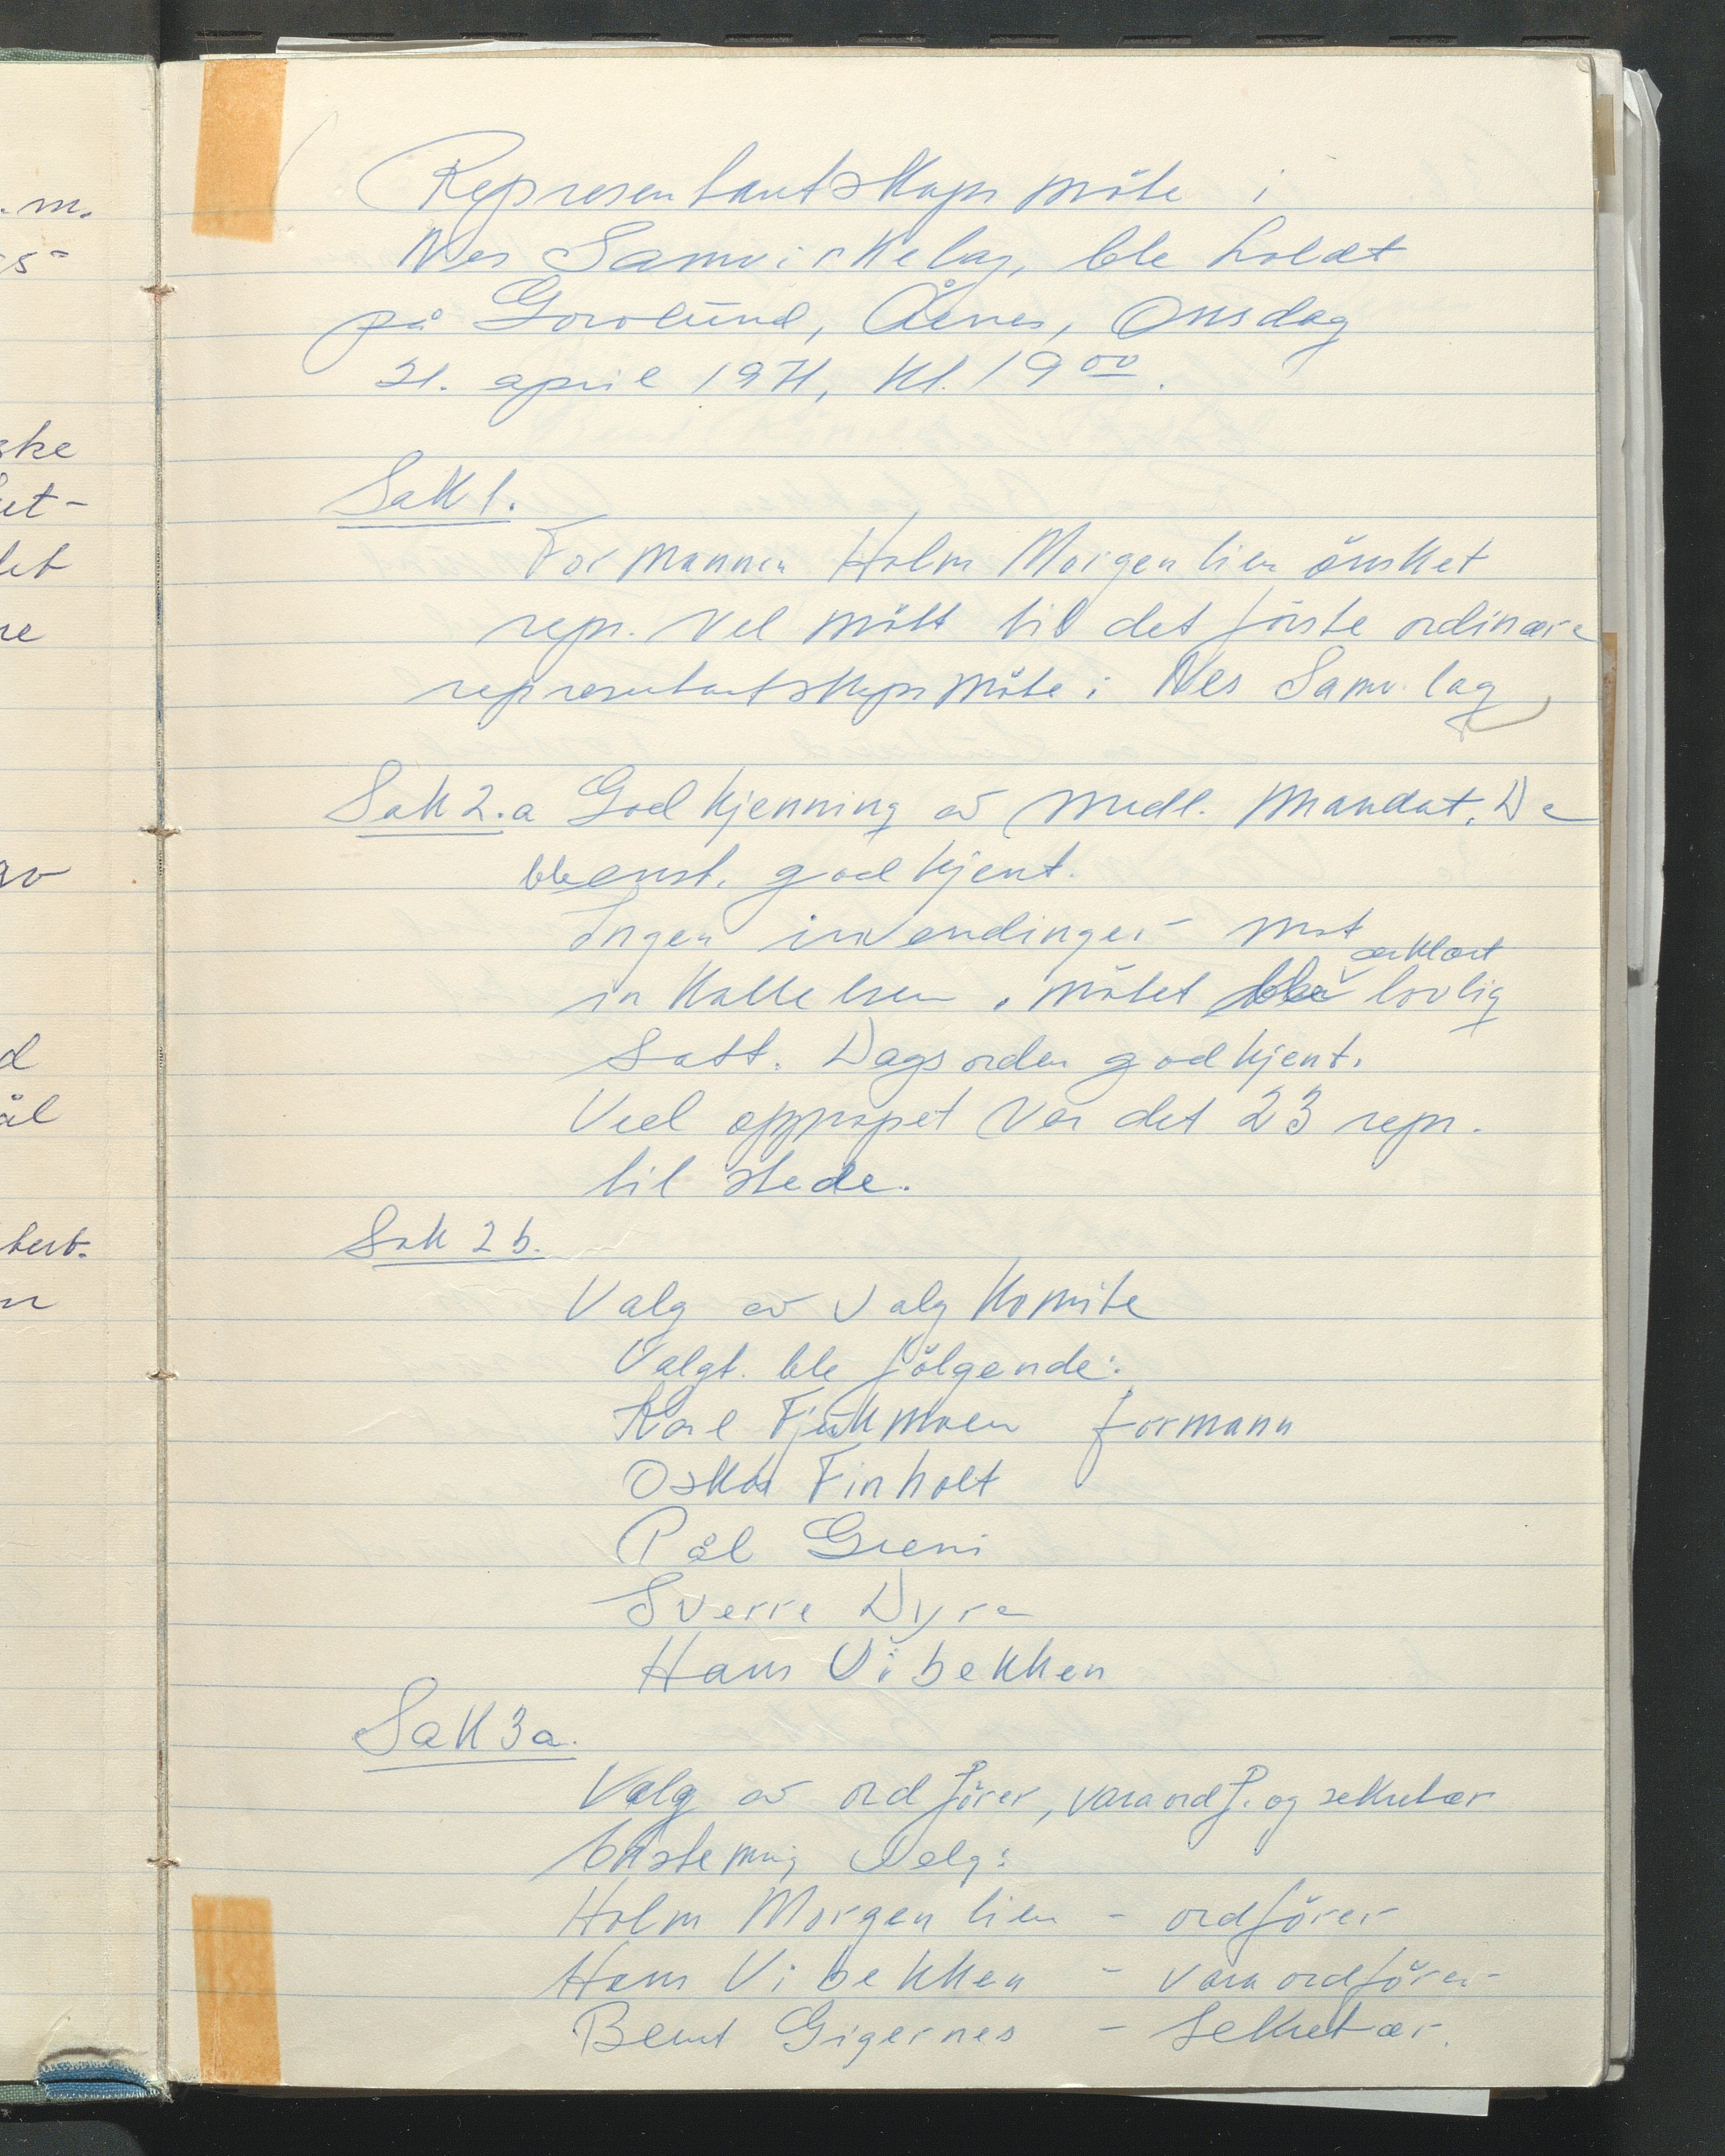 Representantskaps møte i
Nes Samvirkelag, ble holdt
på Grorlund, Årnes, Onsdag
21. april 1971, Kl. 19 00.
Sak 1.
Formannen Holm Morgenlien ønsket
repr. vel møtt til det første ordinære
representantskapsmøte i Nes Samv. lag
Sak 2.a Godkjenning av medl. mandat. De
ble enst. godkjent.
Ingen invendinger mot
innkallelsen. møtet ble erklært lovlig
satt. Dagsorden godkjent.
Ved oppropet var det 23 repr.
til stede.
Sak 2 b.
Valg av valgkomite
Valgt. ble følgende:
Karl Fjukmoen formann
Oskar Finholt
Pål Greni
Sverre Dyre
Hans Vibekken
Sak 3 a.
Valg av ordfører, varaordf. og sekretær
valg:
Holm Morgenlien - ordfører
Hans Vibekken - varaordfører
Bernt Gigernes - Sekretær.
.m.
s-
ske
et-
let
re
av
d
ål